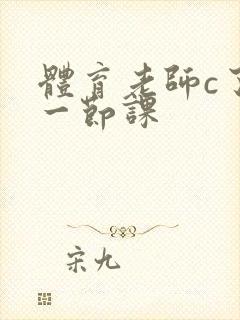 體育老師c了
一節課
宋九